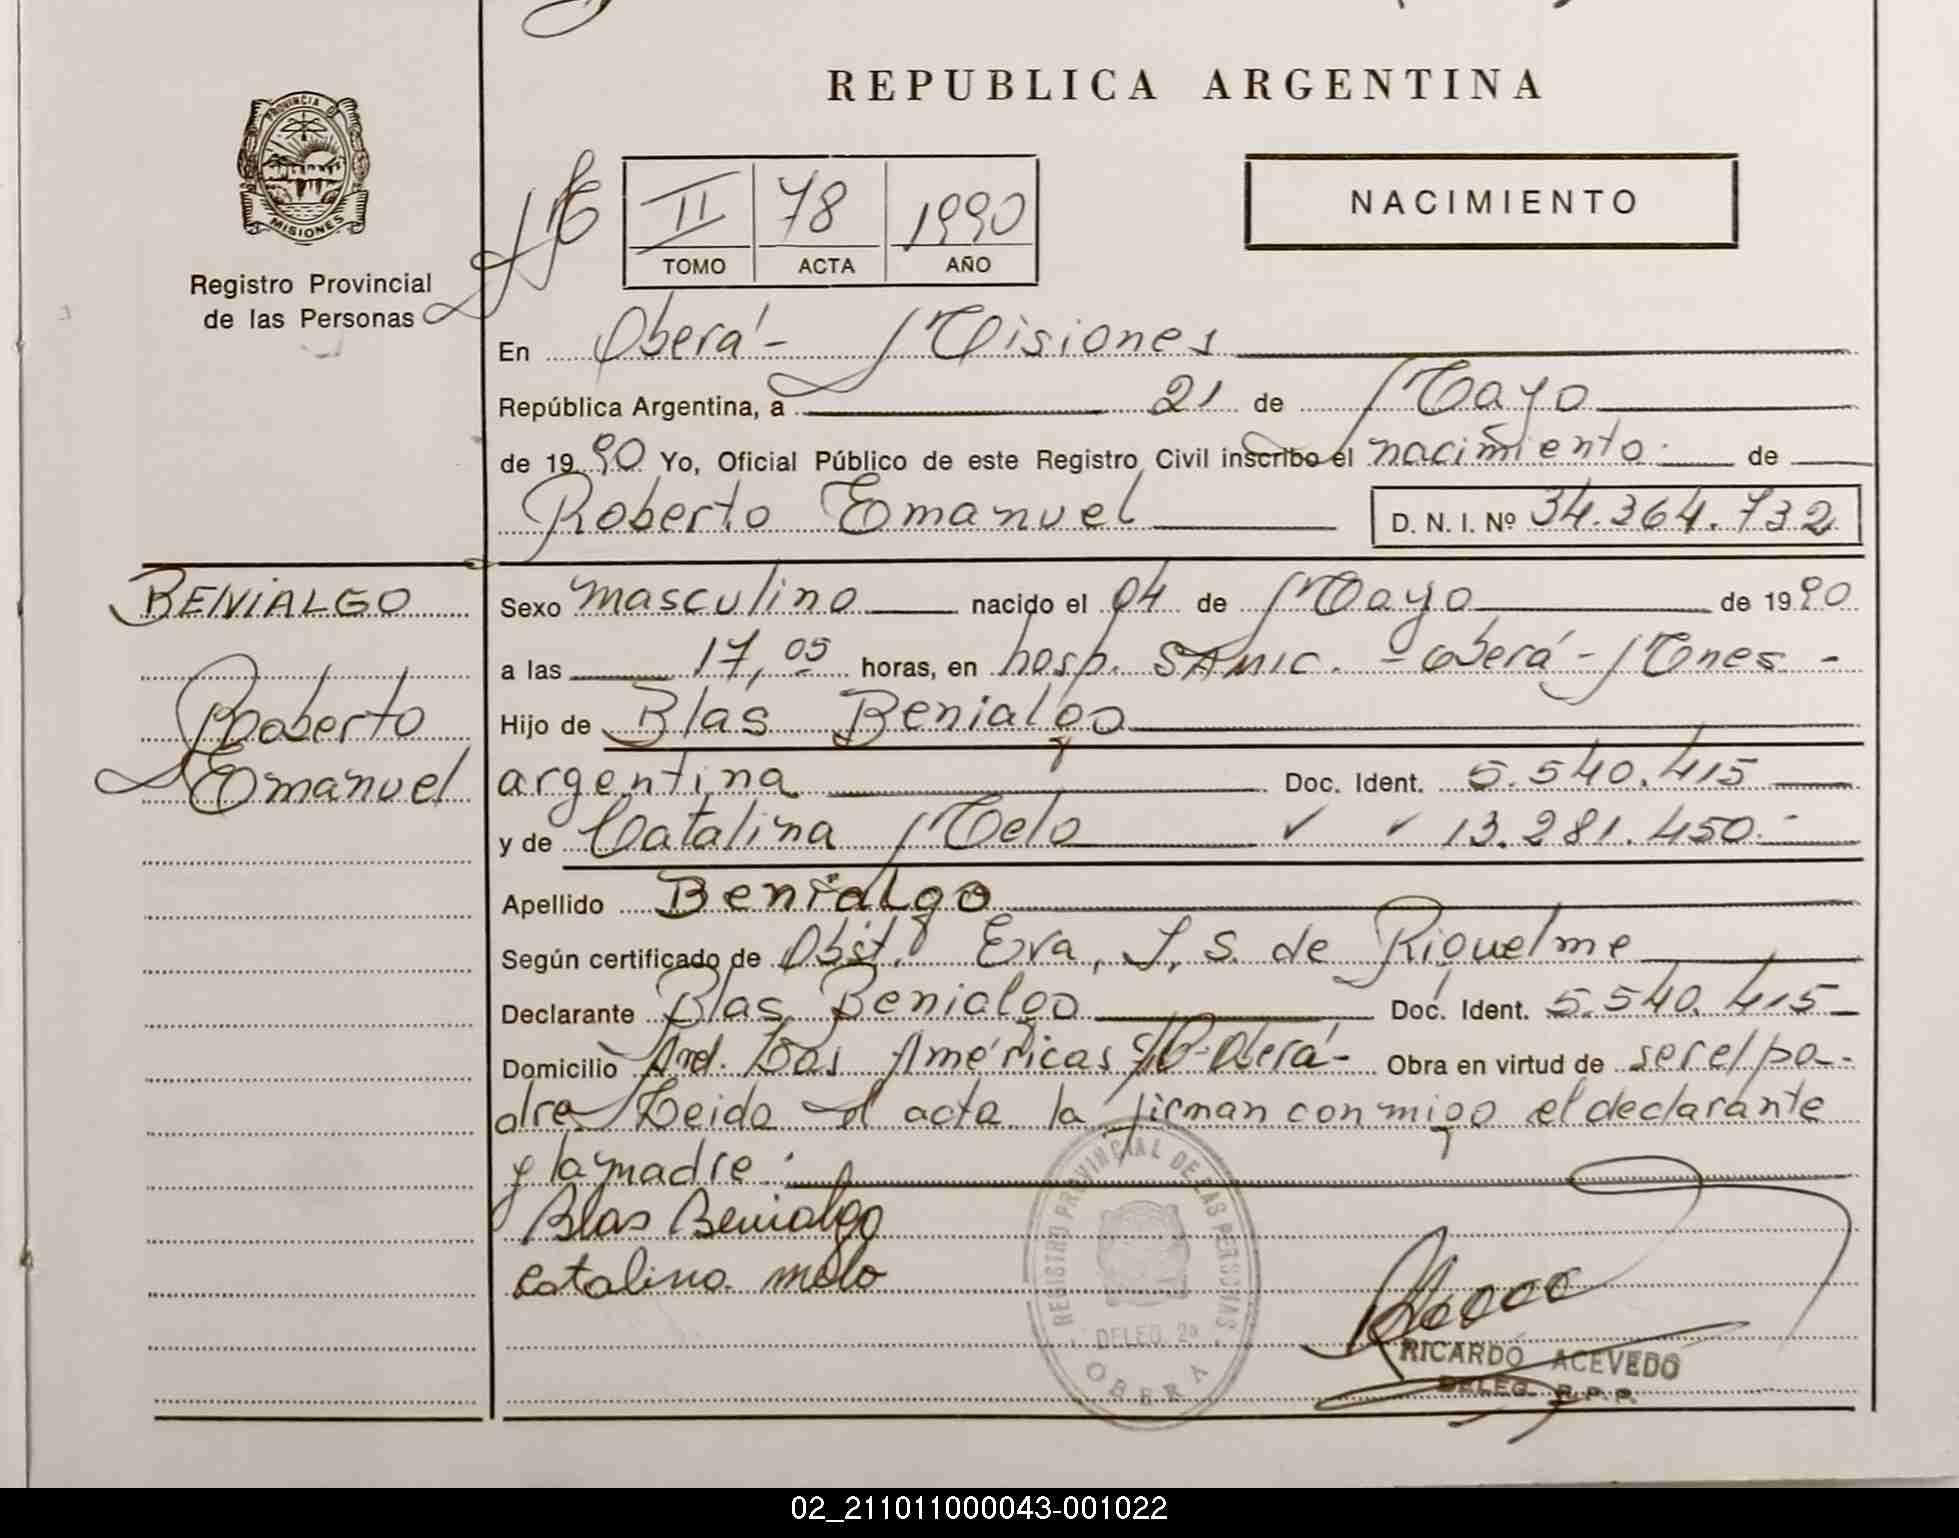 REPUBLICA ARGENTINA
PROVINCIA DE
MISIONES
Registro Provincial
de las Personas
II 78 1990
TOMO ACTA AÑO
NACIMIENTO
En Oberá - Misiones
República Argentina, a 21 de Mayo
de 1990 Yo, Oficial Público de este Registro Civil inscribo el nacimiento de
Roberto Emanuel D. N. I. Nº 34.364.732
BENIALGO
Roberto
Emanuel
Sexo masculino nacido el 04 de Mayo de 1990
a las 17,05 horas, en hosp. SAMIC. - Oberá - Mnes -
Hijo de Blas Benialgo
argentina Doc. Ident. 5.540.415
y de Catalina Melo ✓ ✓ 13.281.450.-
Apellido Benialgo
Según certificado de Obst. Eva, S. de Riquelme
Declarante Blas Benialgo Doc. Ident. 5.540.415
Domicilio Las Américas Oberá - Obra en virtud de ser el pa-
dre Leida el acta la firman conmigo el declarante
y la madre:
Blas Benialgo
Catalina melo
REGISTRO PROVINCIAL DE LAS PERSONAS
DELEG. 2a
OBERA
RICARDO ACEVEDO
DELEG. R.P.P.
02_211011000043-001022